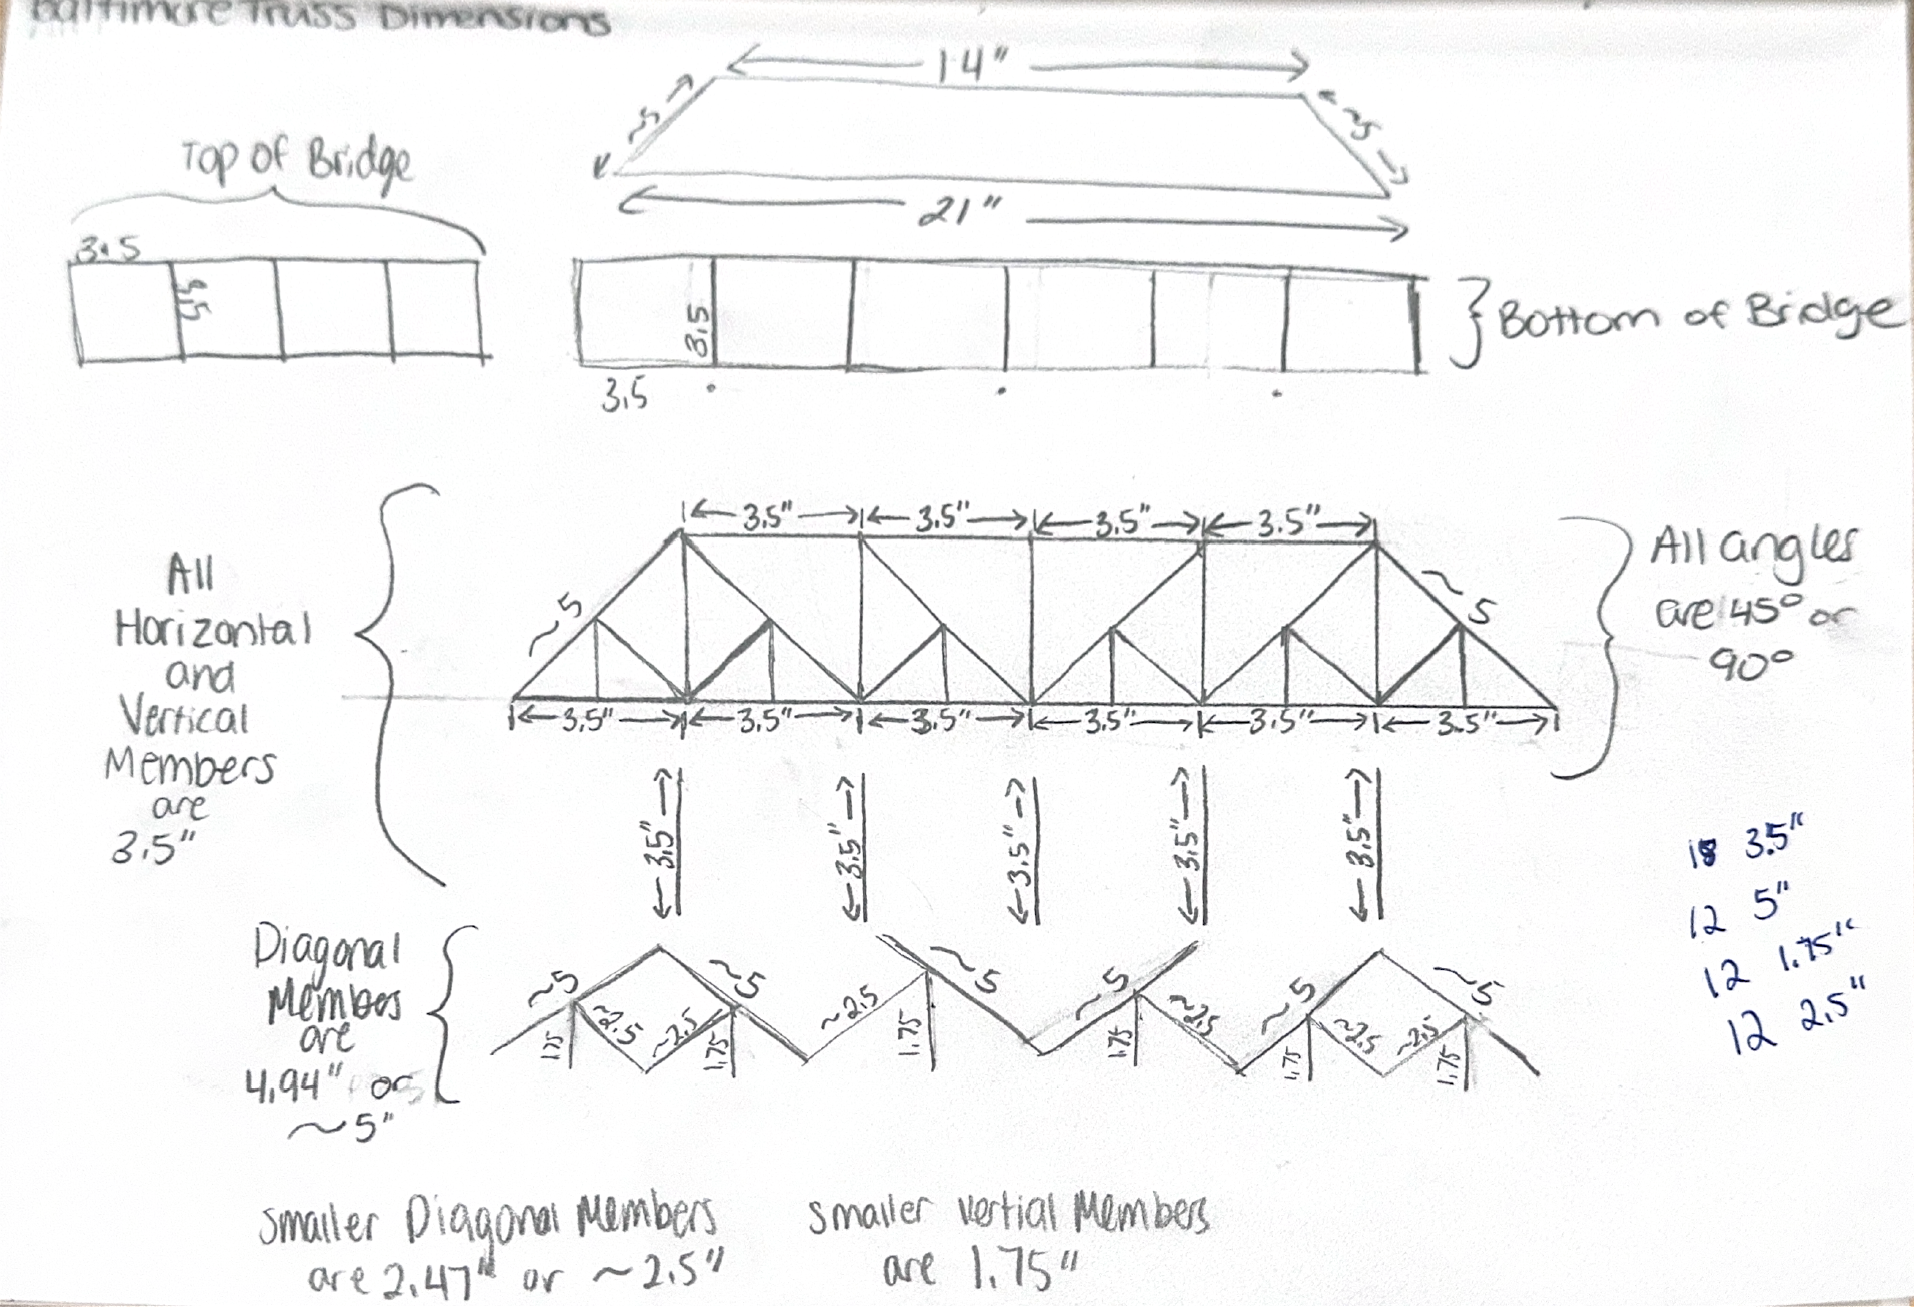 Baltimore Truss Dimensions
14"
~5
~5
21"
Top of Bridge
3.5
3.5
3.5
3.5
Bottom of Bridge
All
Horizontal
and
Vertical
Members
are
3.5"
3.5"
3.5"
3.5"
3.5"
~5
~5
All angles
are 45° or
90°
3.5"
3.5"
3.5"
3.5"
3.5"
3.5"
3.5"
3.5"
3.5"
3.5"
3.5"
Diagonal
Members
are
4.94" or
~5"
~5
~5
~5
~5
~5
~5
~2.5
~2.5
~2.5
~2.5
~2.5
~2.5
1.75
1.75
1.75
1.75
1.75
1.75
3.5"
12 5"
12 1.75"
12 2.5"
smaller Diagonal Members
are 2.47" or ~2.5"
smaller vertial Members
are 1.75"